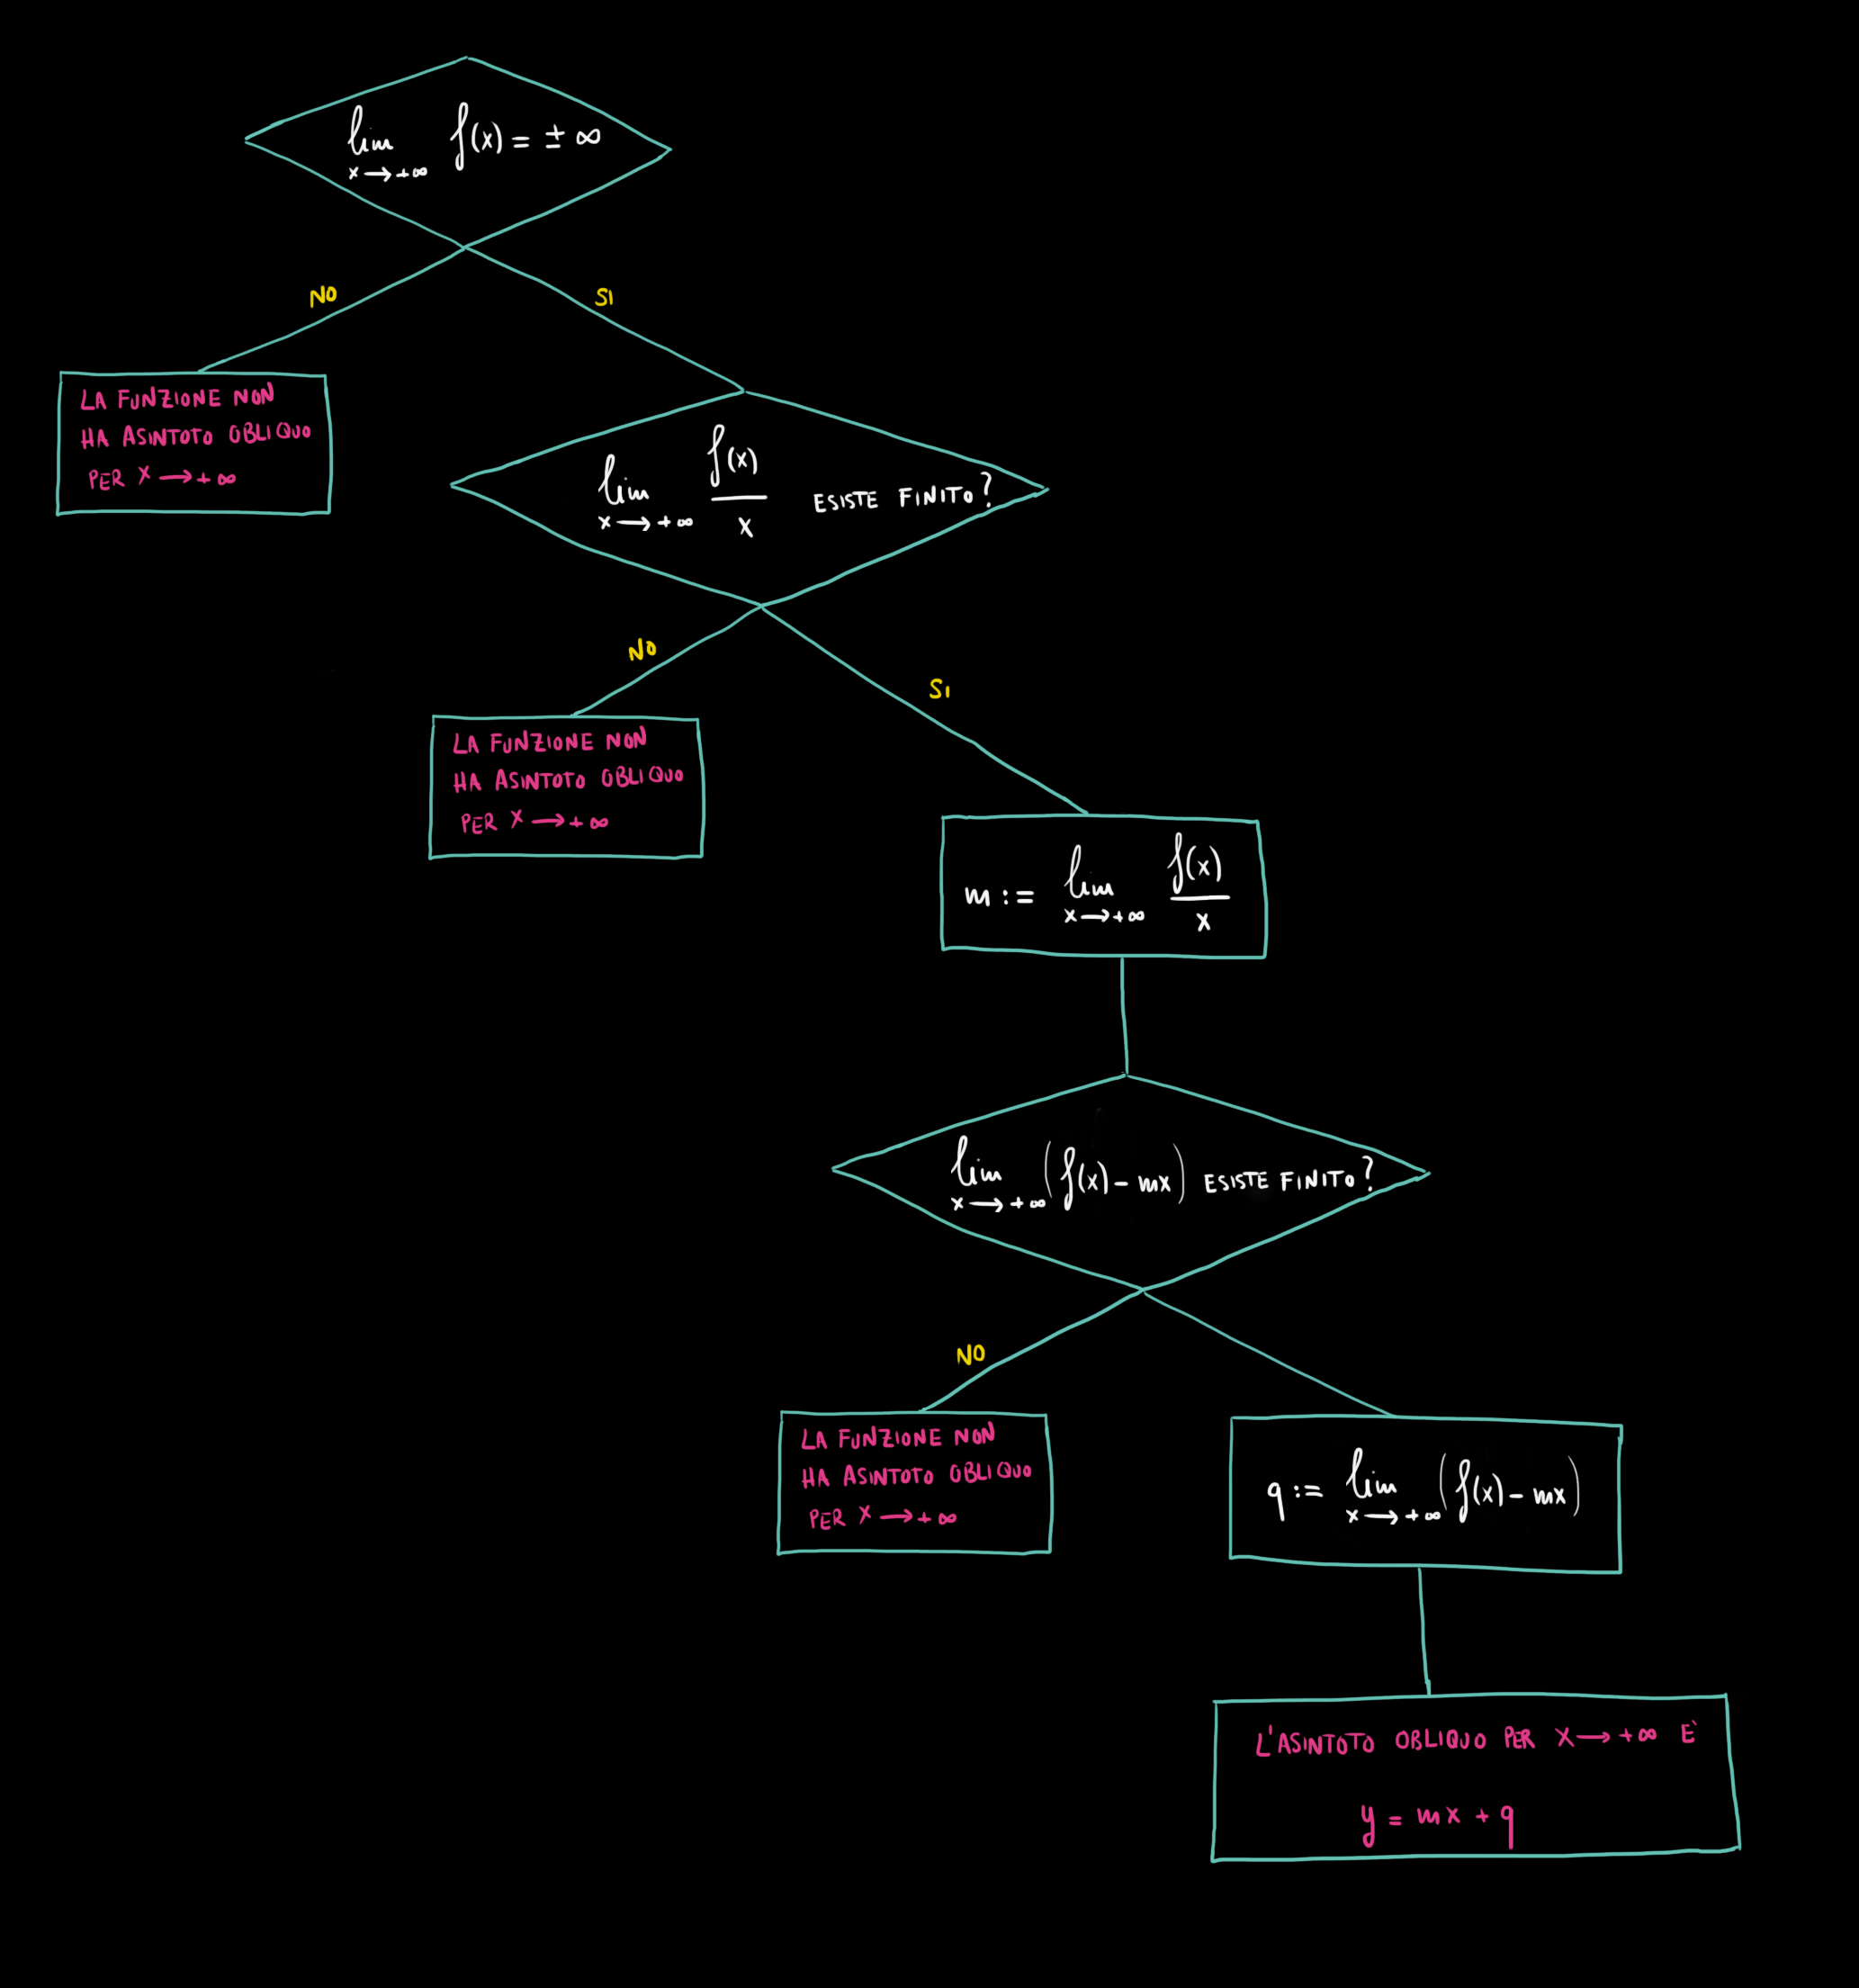 lim f(x) = ± ∞
x → +∞
NO
SI
LA FUNZIONE NON
HA ASINTOTO OBLIQUO
PER X → + ∞
lim f(x)/x ESISTE FINITO?
x → + ∞
NO
SI
LA FUNZIONE NON
HA ASINTOTO OBLIQUO
PER X → + ∞
m := lim f(x)/x
x → + ∞
lim (f(x) - mx) ESISTE FINITO?
x → + ∞
NO
LA FUNZIONE NON
HA ASINTOTO OBLIQUO
PER X → + ∞
q := lim (f(x) - mx)
x → + ∞
L'ASINTOTO OBLIQUO PER X → + ∞ E'
y = mx + q